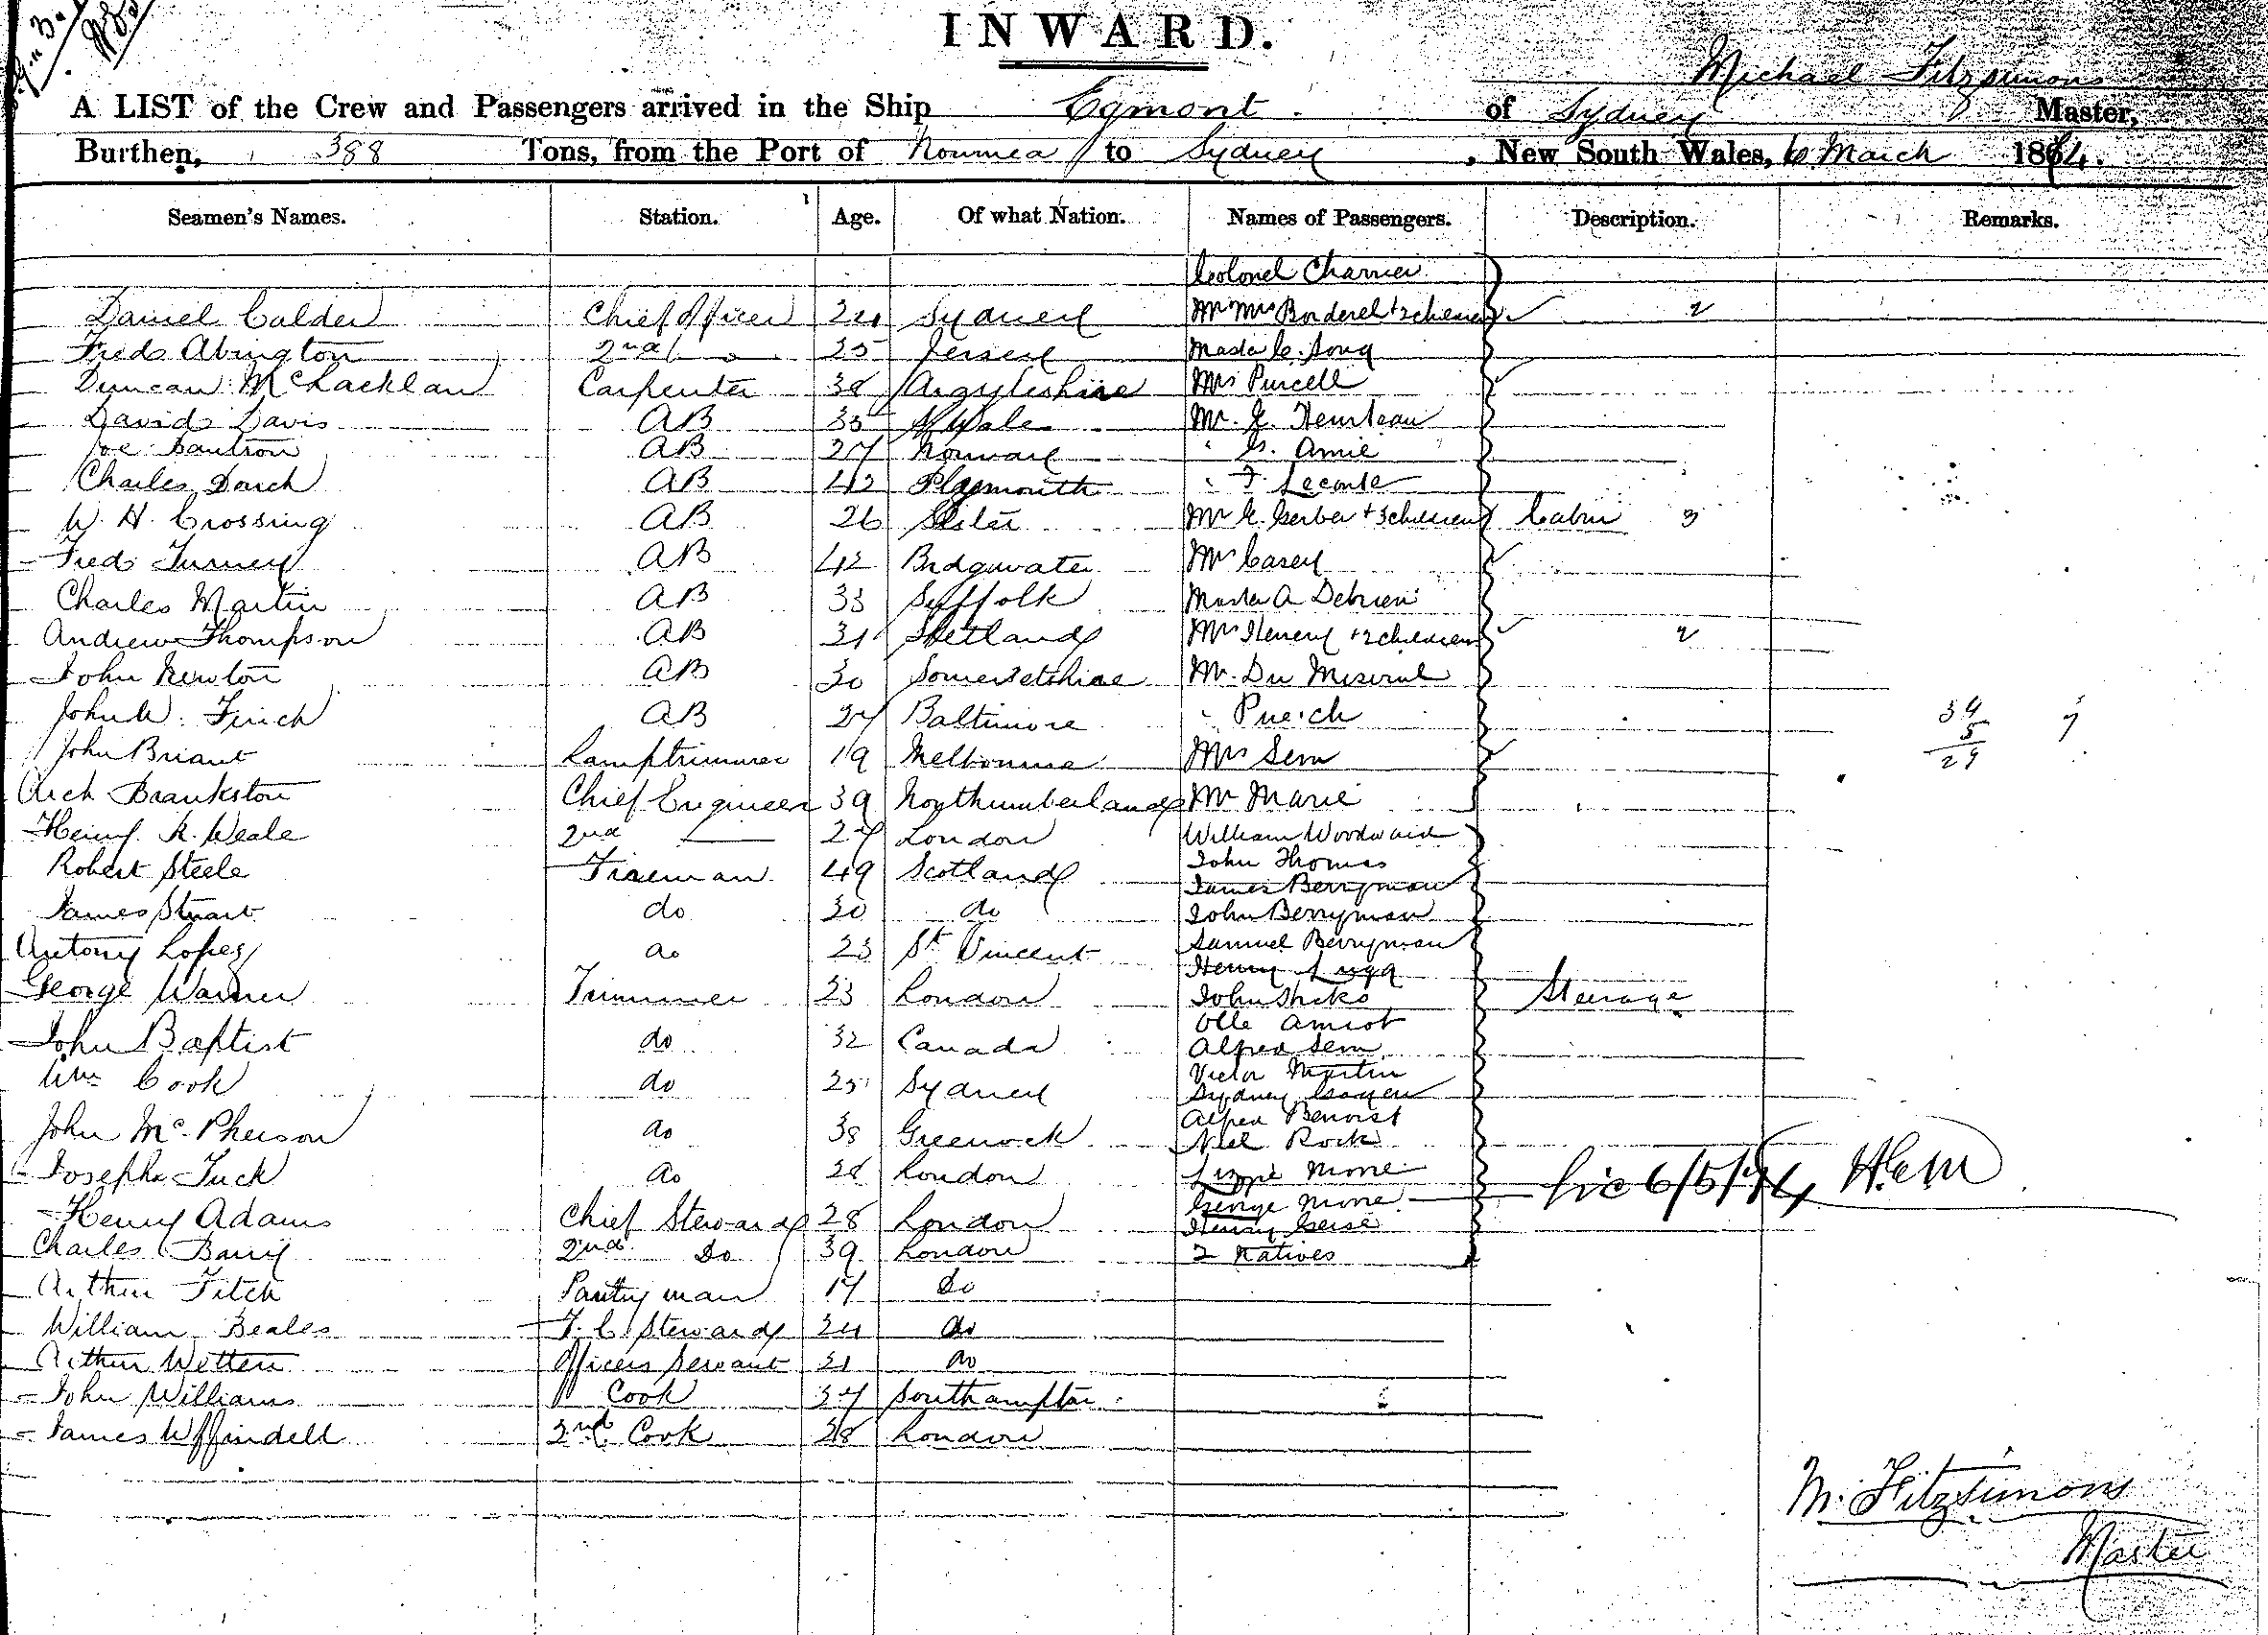 INWARD.
Michael Fitzsimons
A LIST of the Crew and Passengers arrived in the Ship Egmont of Sydney Master,
Burthen, 388 Tons, from the Port of Noumea to Sydney, New South Wales, 6 March 1874.
Seamen's Names. Station. Age. Of what Nation. Names of Passengers. Description. Remarks.
Colonel Charrier
Daniel Calder Chief Officer 24 Sydney Mr Mrs Borderel + 2 children 2
Fredk Abington 2nd 25 Jersey Master C.
Duncan McLachlan Carpenter 38 Argyleshire Mrs Purcell
David Davis AB 35 Mr. E.
Joe AB 27 Norway " G. Amie
Charles Dorch AB 42 Plymouth " F. Leconte
W. H. Crossing AB 26 Mr E. Gerber + 3 children Cabin 3
Fredk Turney AB 42 Bridgwater Mr Casey
Charles Martin AB 33 Suffolk Master A
Andrew Thompson AB 31 Shetland Mrs Henery + 2 children 2
John Newton AB 30 Somersetshire Mr. Du
John W. Finch AB 27 Baltimore " Puech 34 7
5
29
John Briant Lamptrimmer 19 Melbourne Mrs Sem
Arch Brankston Chief Engineer 39 Northumberland Mr Marie
Henry R. Weale 2nd 27 London William Woodward
Robert Steele Fireman 49 Scotland John Thomas
James Berryman
James Stuart do 30 do John Berryman
Antony Lopes do 23 St Vincent Samuel Berryman
Henry
George Warner Trimmer 23 London John Steerage
Olle Amiot
John Baptist do 32 Canada Alfred Sem
Wm Cook do 25 Sydney Victor Martin
Sydney
John McPherson do 38 Greenock Alfred Benoist
Niel Rock
Joseph Tuck do 28 London Lizzie Morre 6/5/74 H.C.M
George Morre
Henry Adams Chief Steward 28 London Henry
Charles Barry 2nd Do 39 London 2 Natives
Arthur Fitch Pantryman 17 Do
William Beales F. C. Steward 24 do
Arthur Wotten Officers Servant 21 do
John Williams Cook 37 Southampton
James Wffindell 2nd Cook 28 London
M. Fitzsimons
Master